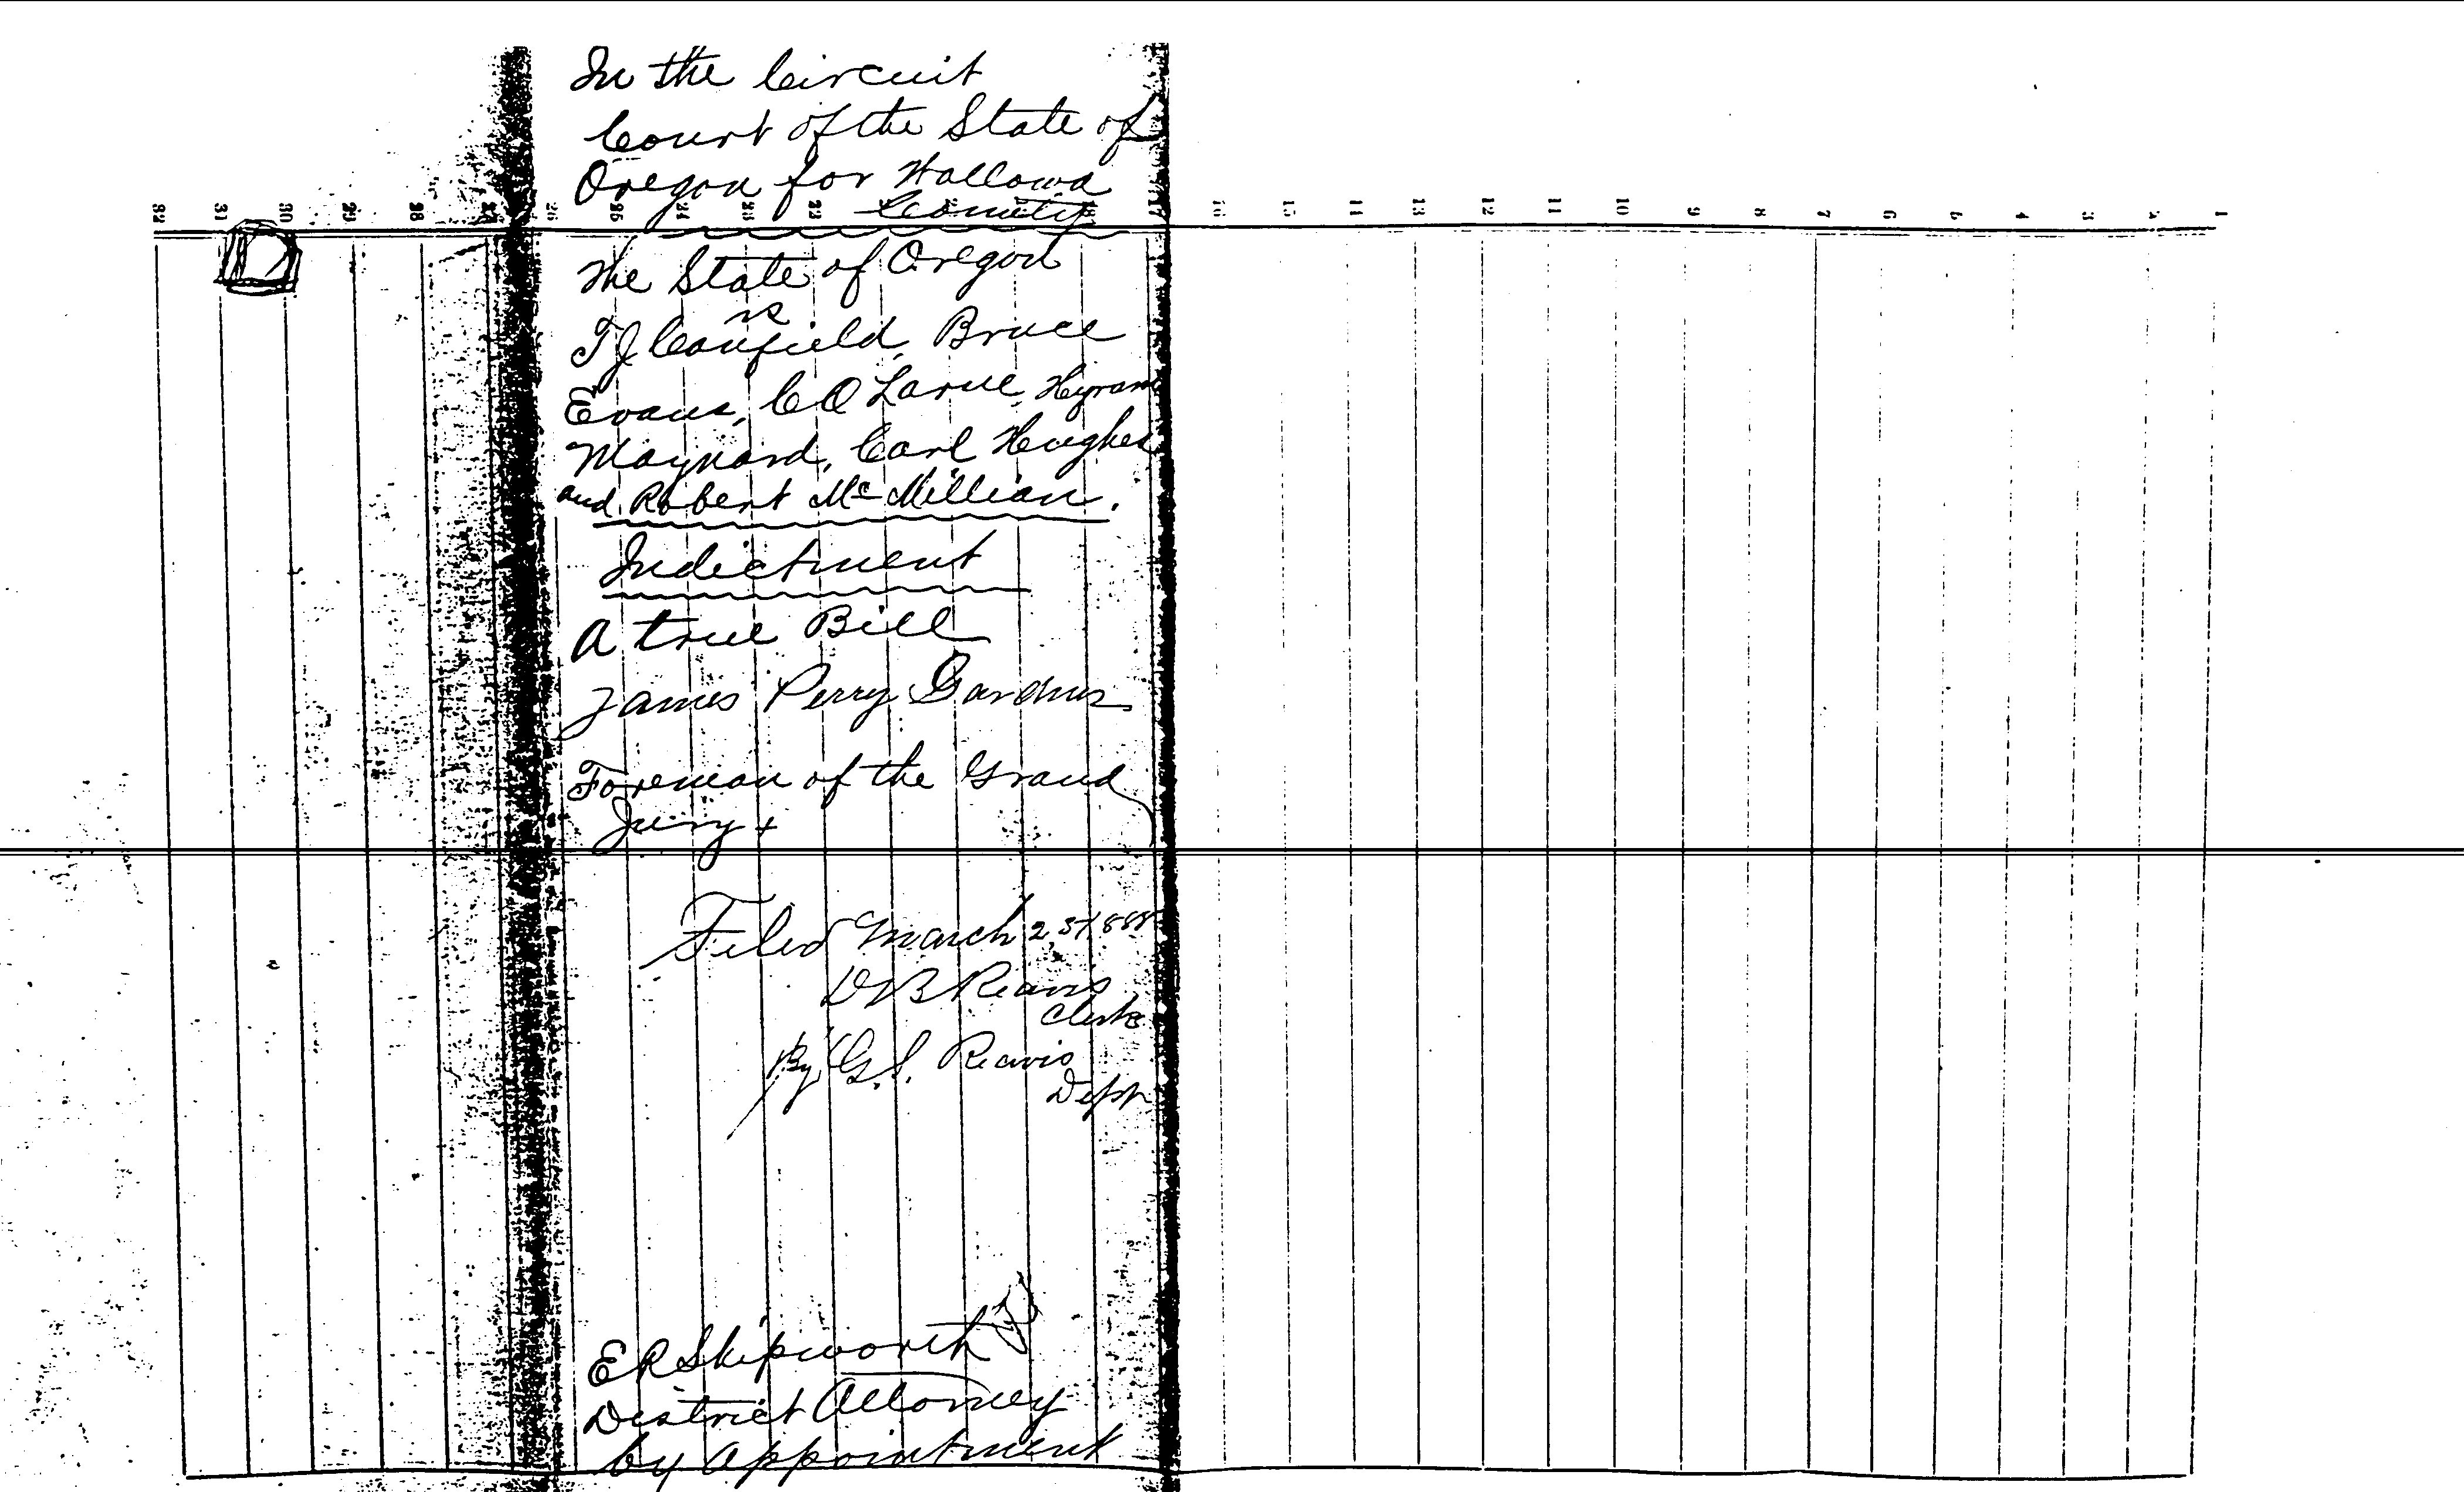 In the Circuit
Court of the State of
Oregon for Wallowa
County
32 31 30 29 28 27 26 25 24 23 22 18 17 16 15 14 13 12 11 10 9 8 7 6 5 4 3 2 1
The State of Oregon
vs
T J Canfield, Bruce
Evans, C O Larue, Hyram
Maynard, Carl Hughes
and Robert Mc Millian.
Indictment
A true Bill
James Perry Gardner
Foreman of the Grand
Jury
Filed March 1888
D B Reavis
Clerk
By G. S. Reavis
Dep
E R Skipworth
District Attorney
by appointment